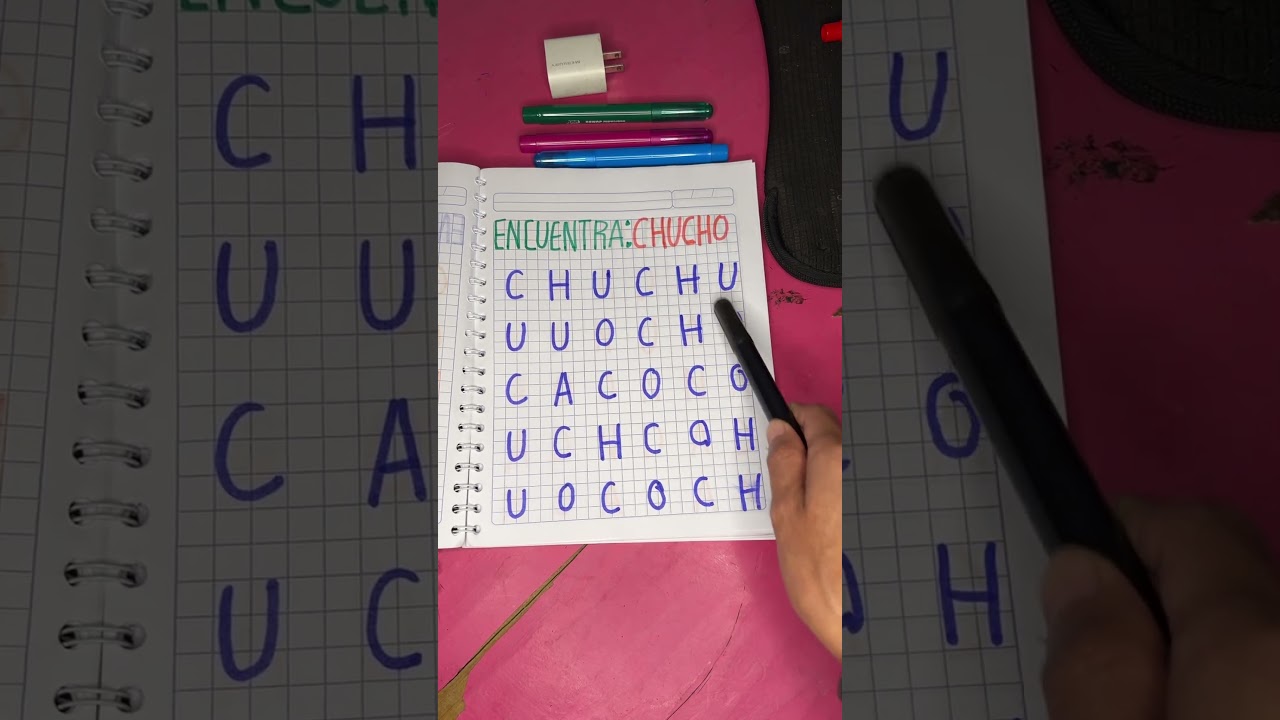 ENCUENTRA: CHUCHO
C H U C H U
U U O C H
C A C O C O
U C H C O H
U O C O C H